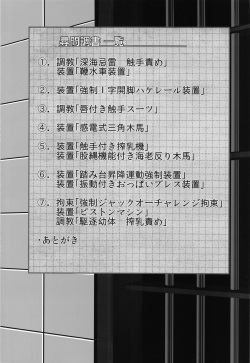 尋問調書一覧
①．調教「深海忌雷　触手責め」
装置「鞭水車装置」
②．装置「強制Ｉ字開脚ハケレール装置」
③．調教「唇付き触手スーツ」
④．装置「感電式三角木馬」
⑤．装置「触手付き搾乳機」
装置「股縄機能付き海老反り木馬」
⑥．装置「踏み台昇降運動強制装置」
装置「振動付きおっぱいプレス装置」
⑦．拘束「強制ジャックオーチャレンジ拘束」
装置「ピストンマシン」
調教「駆逐幼体　搾乳責め」
・あとがき